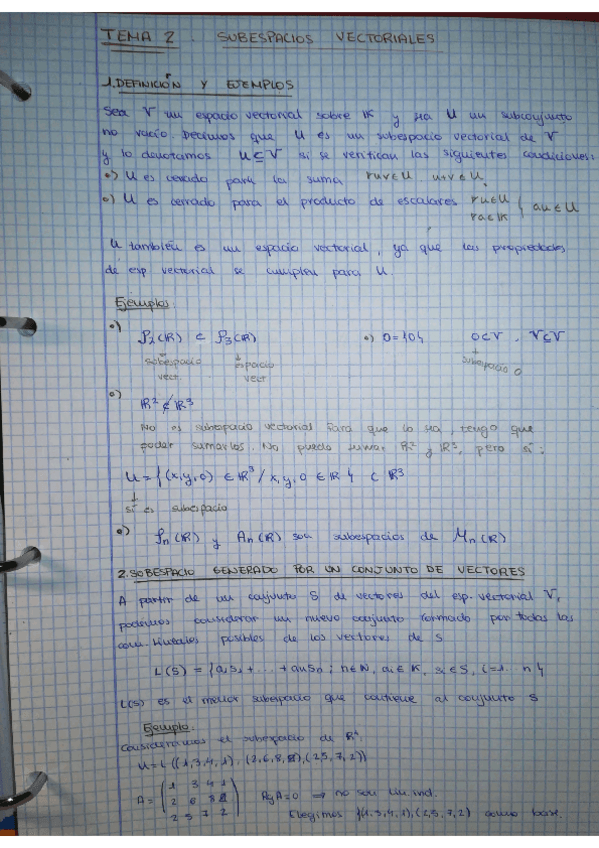 TEMA 2. SUBESPACIOS VECTORIALES
1. DEFINICIÓN Y EJEMPLOS
Sea V un espacio vectorial sobre K y sea U un subconjunto
no vacío. Decimos que U es un subespacio vectorial de V
y lo denotamos U⊆V si se verifican las siguientes condiciones:
•) U es cerrado para la suma ∀u,v∈U, u+v∈U
•) U es cerrado para el producto de escalares ∀u∈U ∀a∈K } au∈U
U también es un espacio vectorial, ya que las propiedades
de esp vectorial se cumplen para U.
Ejemplos:
•) P₂(R) ⊂ P₃(R) •) 0={0} 0⊂V, V⊆V
subespacio vect. espacio vect. subespacio 0
•) R² ⊄ R³
No es subespacio vectorial. Para que lo sea, tengo que
poder sumarlos. No puedo sumar R² y R³, pero sí:
U={(x,y,0) ∈ R³ / x,y,0 ∈ R} ⊂ R³
sí es subespacio
•) (R) y An(R) son subespacios de Mn(R)
2. SUBESPACIO GENERADO POR UN CONJUNTO DE VECTORES
A partir de un conjunto S de vectores del esp. vectorial V,
podemos considerar un nuevo conjunto formado por todas las
com. lineales posibles de los vectores de S
L(S) = {a₁s₁+...+ansn ; n∈N, ai∈K, si∈S, i=1...n}
L(S) es el menor subespacio que contiene al conjunto S
Ejemplo:
Consideramos el subespacio de R⁴:
U=L((1,3,4,1), (2,6,8,2), (2,5,7,2))
A = ( 1 3 4 1
2 6 8 2
2 5 7 2 ) ⇒ no son lin. ind.
Elegimos {(1,3,4,1),(2,5,7,2) como base.